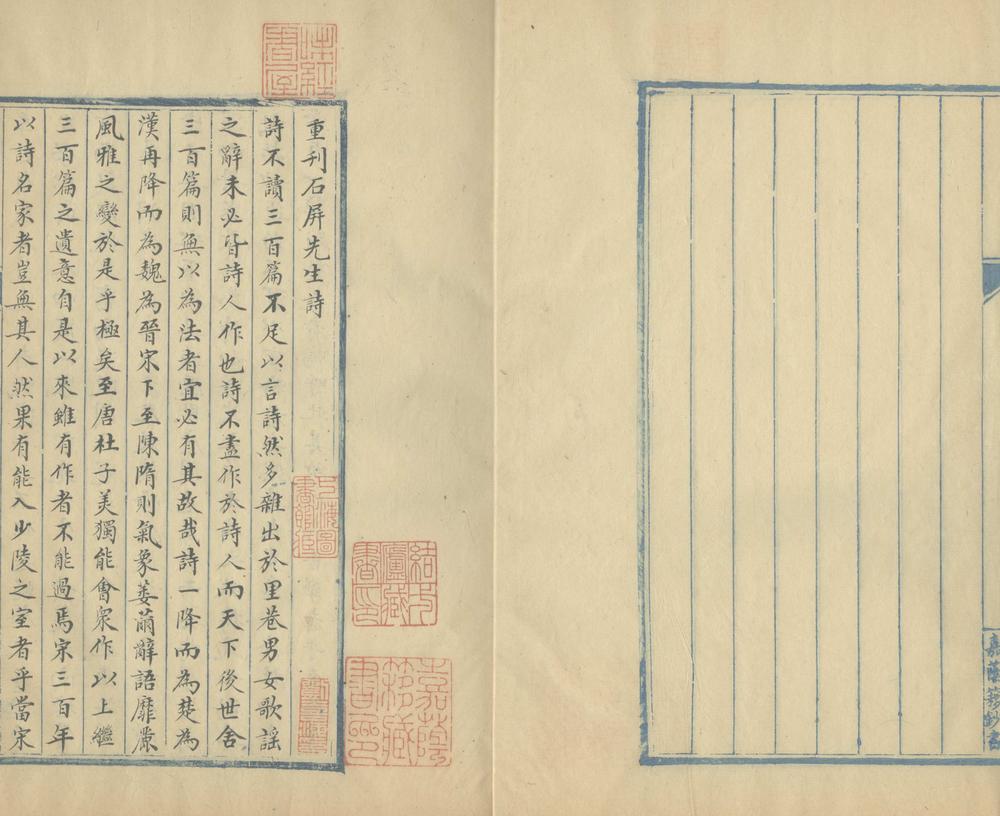 嘉蔭簃鈔書
重刊石屏先生詩
詩不讀三百篇不足以言詩然多雜出於里巷男女歌謡
之辭未必皆詩人作也詩不盡作於詩人而天下後世舍
三百篇則無以為法者宜必有其故哉詩一降而為楚為
漢再降而為魏為晉宋下至陳隋則氣象萎薾辭語靡䕷
風雅之變於是乎極矣至唐杜子美獨能會衆作以上繼
三百篇之遺意自是以來雖有作者不能過焉宋三百年
以詩名家者豈無其人然果有能入少陵之室者乎當宋
味經書屋
結弌廬藏書印
嘉蔭簃藏書印